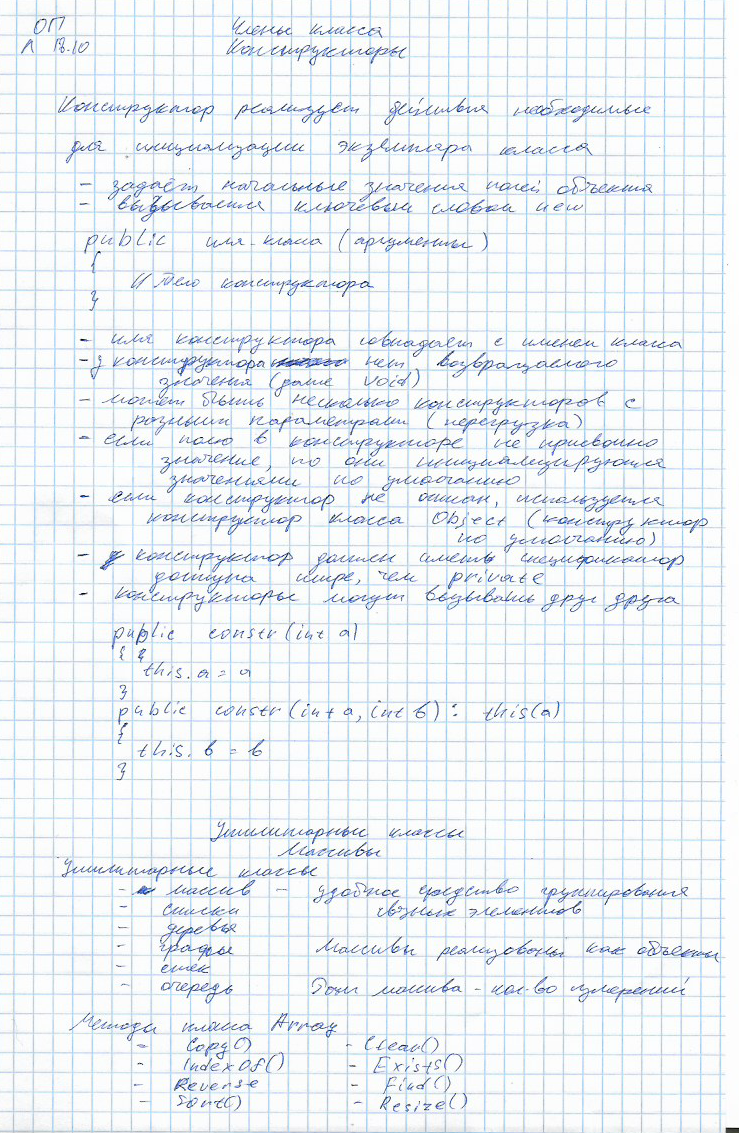 ОП Члены класса
Л 13.10 Конструкторы
Конструктор реализует действия необходимые
для инициализации экземпляра класса
- задаёт начальные значения полей объекта
- вызывается ключевым словом new
public имя класса (аргументы)
{
// тело конструктора
}
- имя конструктора совпадает с именем класса
- у конструктора нет возвращаемого
значения (даже void)
- может быть несколько конструкторов с
разными параметрами (перегрузка)
- если полю в конструкторе не присвоено
значение, то они инициализируются
значениями по умолчанию
- если конструктор не описан, используется
конструктор класса Object (конструктор
по умолчанию)
- конструктор должен иметь спецификатор
доступа шире, чем private
- конструкторы могут вызывать друг друга
public constr (int a)
{
this.a = a
}
public constr (int a, int b) : this(a)
{
this. b = b
}
Утилитарные классы
Массивы
Утилитарные классы
- массив - удобное средство группирования
- списки связных элементов
- деревья
- графы Массивы реализованы как объекты
- стек
- очередь Ранг массива - кол-во измерений
Методы класса Array
- Copy() - Clear()
- IndexOf() - Exists()
- Reverse - Find()
- Sort() - Resize()